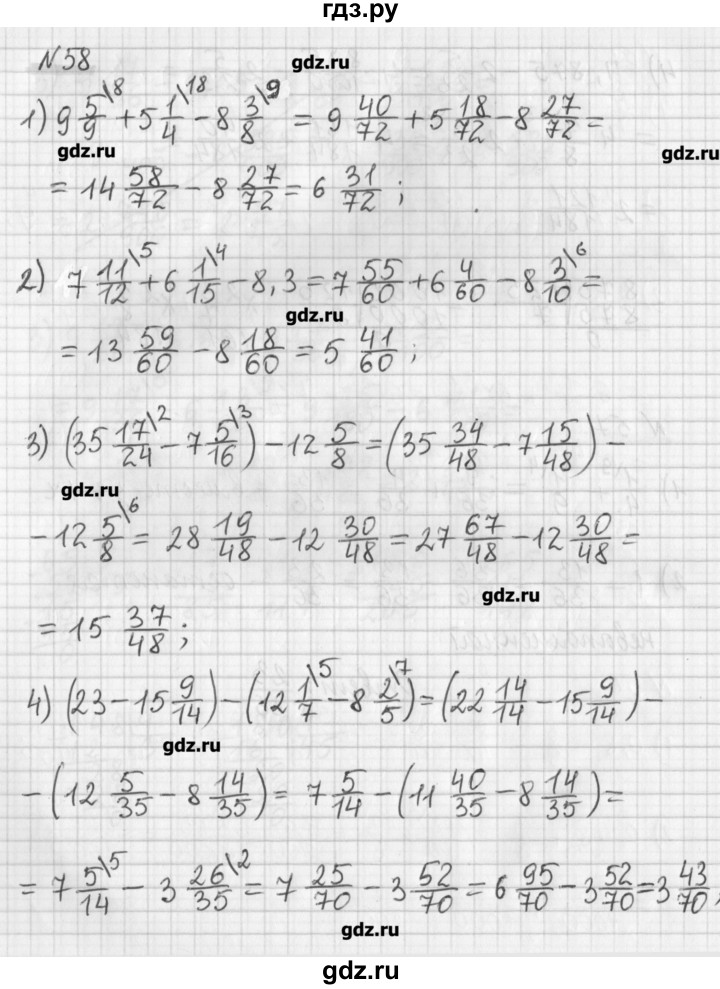 гдз.ру
№58
gdz.ru
1) 9 5/9\8 + 5 1/4\18 - 8 3/8\9 = 9 40/72 + 5 18/72 - 8 27/72 =
gdz.ru
gdz.ru
= 14 58/72 - 8 27/72 = 6 31/72 ;
2) 7 11/12\5 + 6 1/15\4 - 8,3 = 7 55/60 + 6 4/60 - 8 3/10\6 =
gdz.ru
= 13 59/60 - 8 18/60 = 5 41/60 ;
3) (35 17/24\2 - 7 5/16\3) - 12 5/8 = (35 34/48 - 7 15/48) -
gdz.ru
- 12 5/8\6 = 28 19/48 - 12 30/48 = 27 67/48 - 12 30/48 =
gdz.ru
= 15 37/48 ;
4) (23 - 15 9/14) - (12 1/7\5 - 8 2/5\7) = (22 14/14 - 15 9/14) -
gdz.ru
- (12 5/35 - 8 14/35) = 7 5/14 - (11 40/35 - 8 14/35) =
= 7 5/14\5 - 3 26/35\2 = 7 25/70 - 3 52/70 = 6 95/70 - 3 52/70 = 3 43/70 ;
gdz.ru
gdz.ru